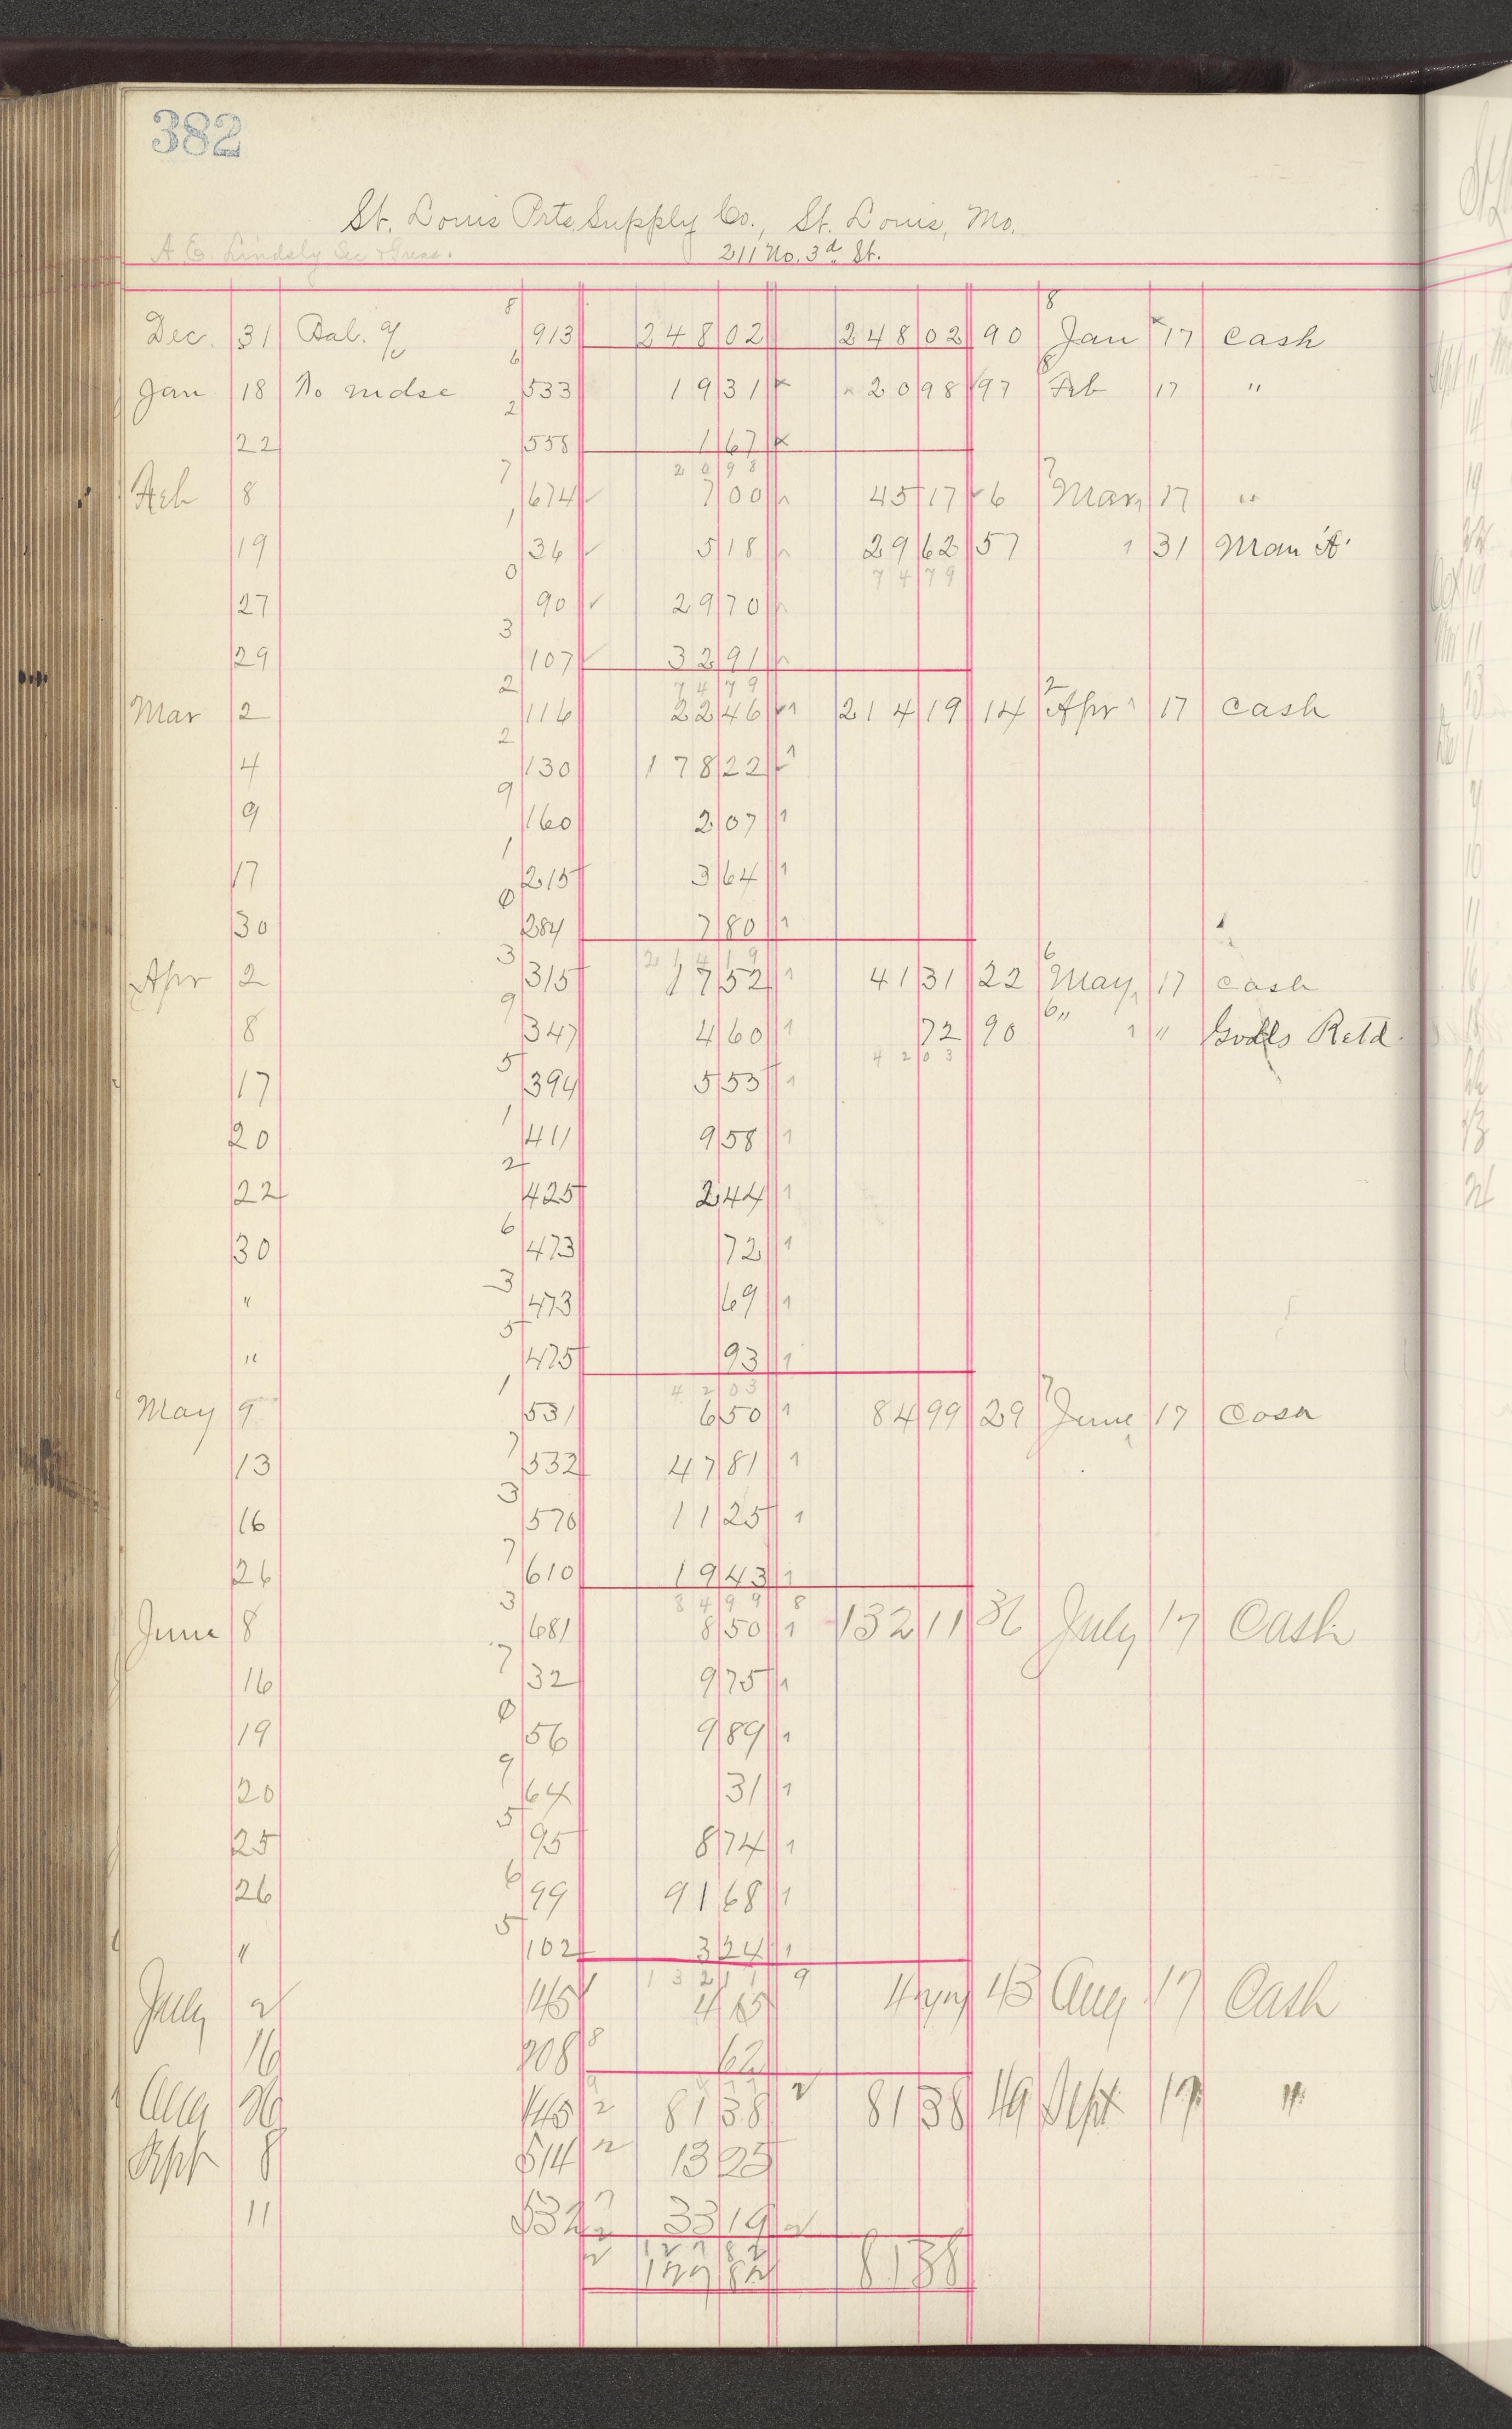 382
St. Louis Prtg Supply Co., St. Louis, Mo.
A. E. Lindsly Sec & Treas. 211 No. 3d St.
Dec. 31 Bal. a/c 8 913 248 02 248 02 90 8 Jan 17 Cash
Jan 18 To mdse 6 533 19 31 20 98 97 8 Feb 17 "
22 2 558 1 67
20 98
Feb 8 7 674 7 00 45 17 6 7 Mar 17 "
19 1 36 5 18 29 62 57 31 Man A
74 79
27 0 90 29 70
29 3 107 32 91
74 79
Mar 2 2 116 22 46 214 19 14 2 Apr 17 Cash
4 2 130 178 22
9 9 160 2 07
17 1 215 3 64
30 0 284 7 80
214 19
Apr 2 3 315 17 52 41 31 22 6 May 17 Cash
8 9 347 4 60 72 90 6 " " Goods Retd.
42 03
17 5 394 5 53
20 1 411 9 58
22 2 425 2 44
30 6 473 72
" 3 473 69
" 5 475 93
42 03
May 9 1 531 6 50 84 99 29 7 June 17 Cash
13 7 532 47 81
16 3 570 11 25
26 7 610 19 43
84 99 8
June 8 3 681 8 50 132 11 36 July 17 Cash
16 7 32 9 75
19 0 56 9 89
20 9 64 31
25 5 95 8 74
26 6 99 91 68
" 5 102 3 24
132 11 9
July 2 145 4 15 4 77 43 Aug 17 Cash
16 208 8 62
Aug 26 445 2 81 38 81 38 49 Sept 17 "
Sept 8 514 2 13 25
11 532 33 19
127 82
127 82 81 38